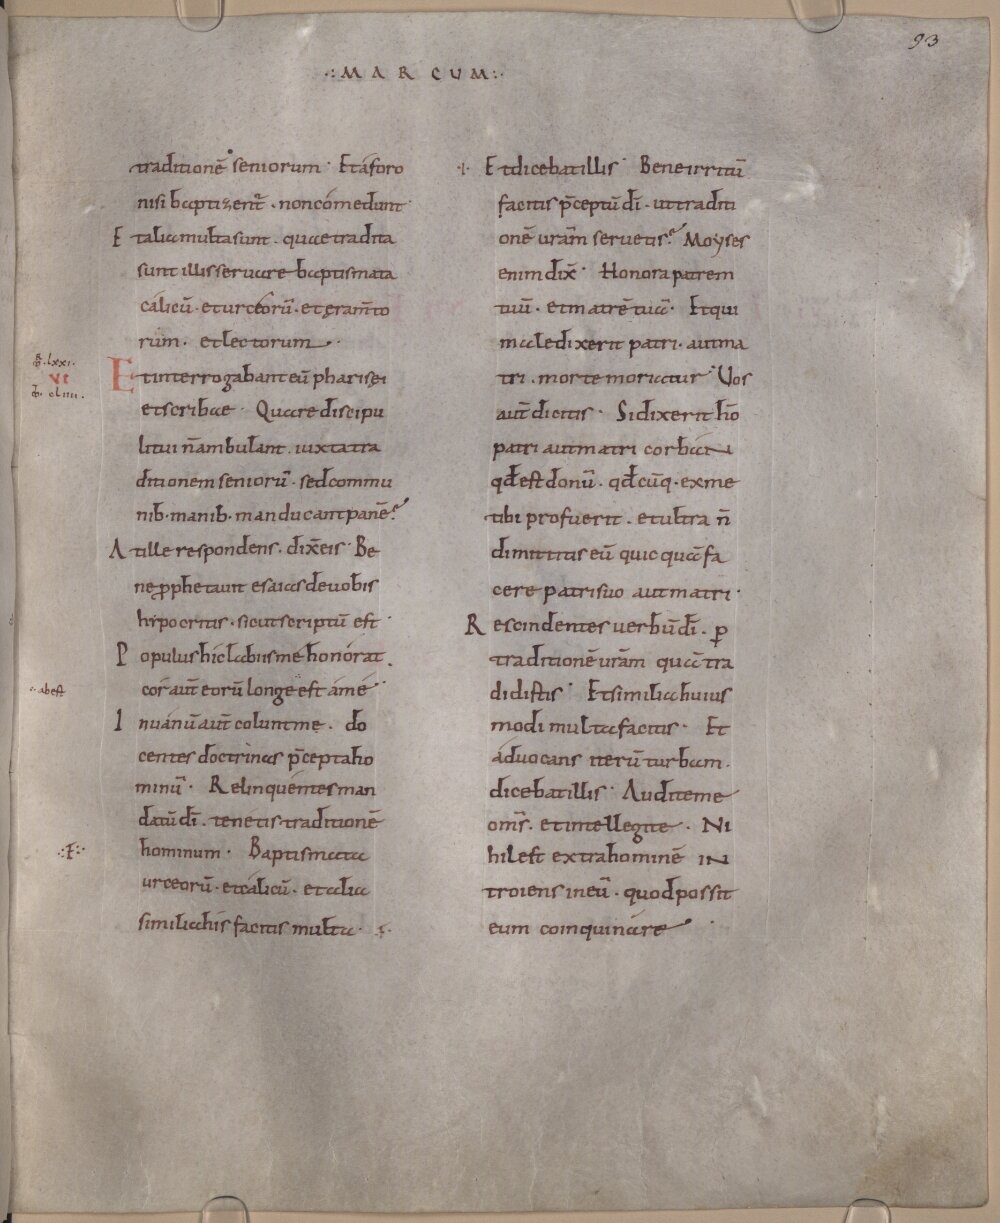 93
·:MARCUM:·
traditionē seniorum · Et a foro
nisi baptizent᷑ · non cómedunt ·
Et alia multa sunt · quae tradita
sunt illis servare baptismata
calicū · et urceorū · et ęram̄to
rum · et lectorum ·
ṁr · lxxi ·
VI
ṁt · cliiii ·
Et interrogabant eū pharisei
et scribae · Quare discipu
li tui n̄ ambulant · iuxta tra
ditionem seniorū · sed commu
nib · manib · manducant panē?
At ille respondens · dix̄ eis · Be
ne ꝓphetavit esaias de vobis
hipocritis · sicut scriptū est ·
Populus hic labiis me honorat ·
·:· abest
cor aut̄ eorū longe est a me ·
In vanū aut̄ colunt me · do
centes doctrinas p̄cepta ho
minū · Relinquentes man
datū dī · tenetis traditionē
·:F:·
hominum · Baptismata
urceorū · et calicū · et alia
similia his facitis multa ·
Et dicebat illis · Bene irritū
facitis p̄ceptū dī · ut traditi
onē vr̄am servetis? Moyses
enim dix̄ · Honora patrem
tuū · et matrē tuā · Et qui
maledixerit patri · aut ma
tri · morte moriatur · Vos
aut̄ dicitis · Si dixerit hō
patri aut matri corban
qd̄ est donū · qd̄cūq · ex me
tibi profuerit · et ultra n̄
dimittitis eū quicquā fa
cere patri suo aut matri ·
Rescindentes verbū dī · ꝑ
traditionē vr̄am quā tra
didistis · Et similia huius
modi multa facitis · Et
advocans iterū turbam ·
dicebat illis · Audite me
om̄s · et intellegite · Ni
hil est extra hominē in
troiens in eū · quod possit
eum coinquinare ·